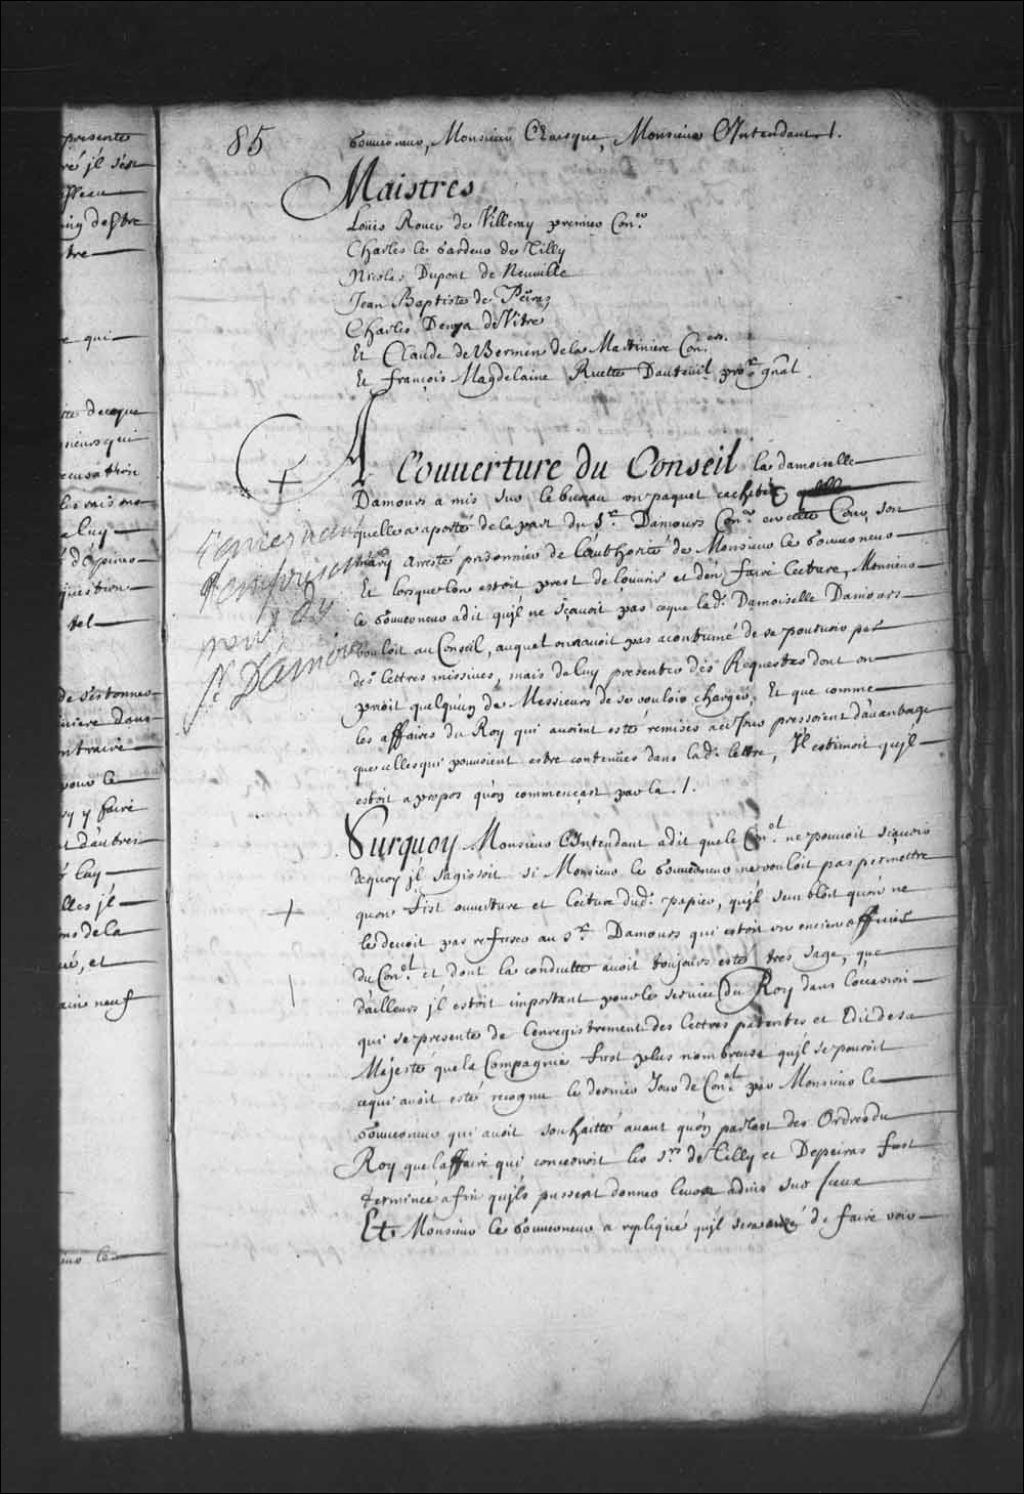 85
Gouuerneur, Monsieur L'Euesque, Monsieur L'Intendant /.
Maistres
Louis Rouer de Villeray premier Con.er
Charles le Gardeur de Tilly
Nicolas Dupont de Neuuille
Jean Baptiste de Peiras
Charles Denys de Vitré
Et Claude de Bermen de la Martiniere Con.ers
Et françois Magdelaine Ruette Dauteuil pro.r gnâl.
A Louuerture du Conseil la damoiselle
Damours a mis sur le bureau vn paquet cacheté
quelle a aporté de la part du S.r Damours Con.er en cette Cour, son
mary Arresté prisonnier de l'authorité de Monsieur le Gouuerneur
Et lorsque lon estoit prest de l'ouurir et d'en faire lecture, Monsieur
le Gouuerneur a dit quil ne sçauoit pas ce que lad. Damoiselle Damours
vouloit au Conseil, auquel on n'auoit pas acoutumé de se pouruoir par
des lettres missiues, mais de luy presenter des Requestes dont on
prioit quelqu'un de Messieurs de se vouloir charger, Et que comme
les affaires du Roy qui auoient esté remises a ce Jour pressoient d'auantage
que celles qui pouuoient estre contenües dans lad. lettre, Il estimoit quil
estoit a propos qu'on commençast par la /.
Surquoy Monsieur L'Intendant a dit que le Con.el ne pouuoit sçauoir
dequoy jl sagissoit si Monsieur le Gouuerneur ne vouloit pas permettre
quon fist ouuerture et lecture dud. papier, quil sembloit quon ne
le deuoit pas refuser au S.r Damours qui estoit vn ancien officier
du Con.el et dont la conduitte auoit toujours esté tres sage, que
d'ailleurs jl estoit important pour le seruice du Roy dans l'occasion
qui se presente de l'enregistrement des lettres patentes et Edit de sa
Majesté que la Compagnie fust plus nombreuse quil se pouroit
ce qui auoit esté recognu le dernier Jour de Con.el par Monsieur le
Gouuerneur qui auoit souhaitté auant qu'on parlast des Ordres du
Roy que l'affaire qui concernoit les S.rs de Tilly et Depeiras fust
terminée afin qu'ils pussent donner leurs aduis sur Iceux
Et Monsieur le Gouuerneur a repliqué quil sera aizé de faire voir
Concernant
l'emprisonne
ment du
S.r Damours